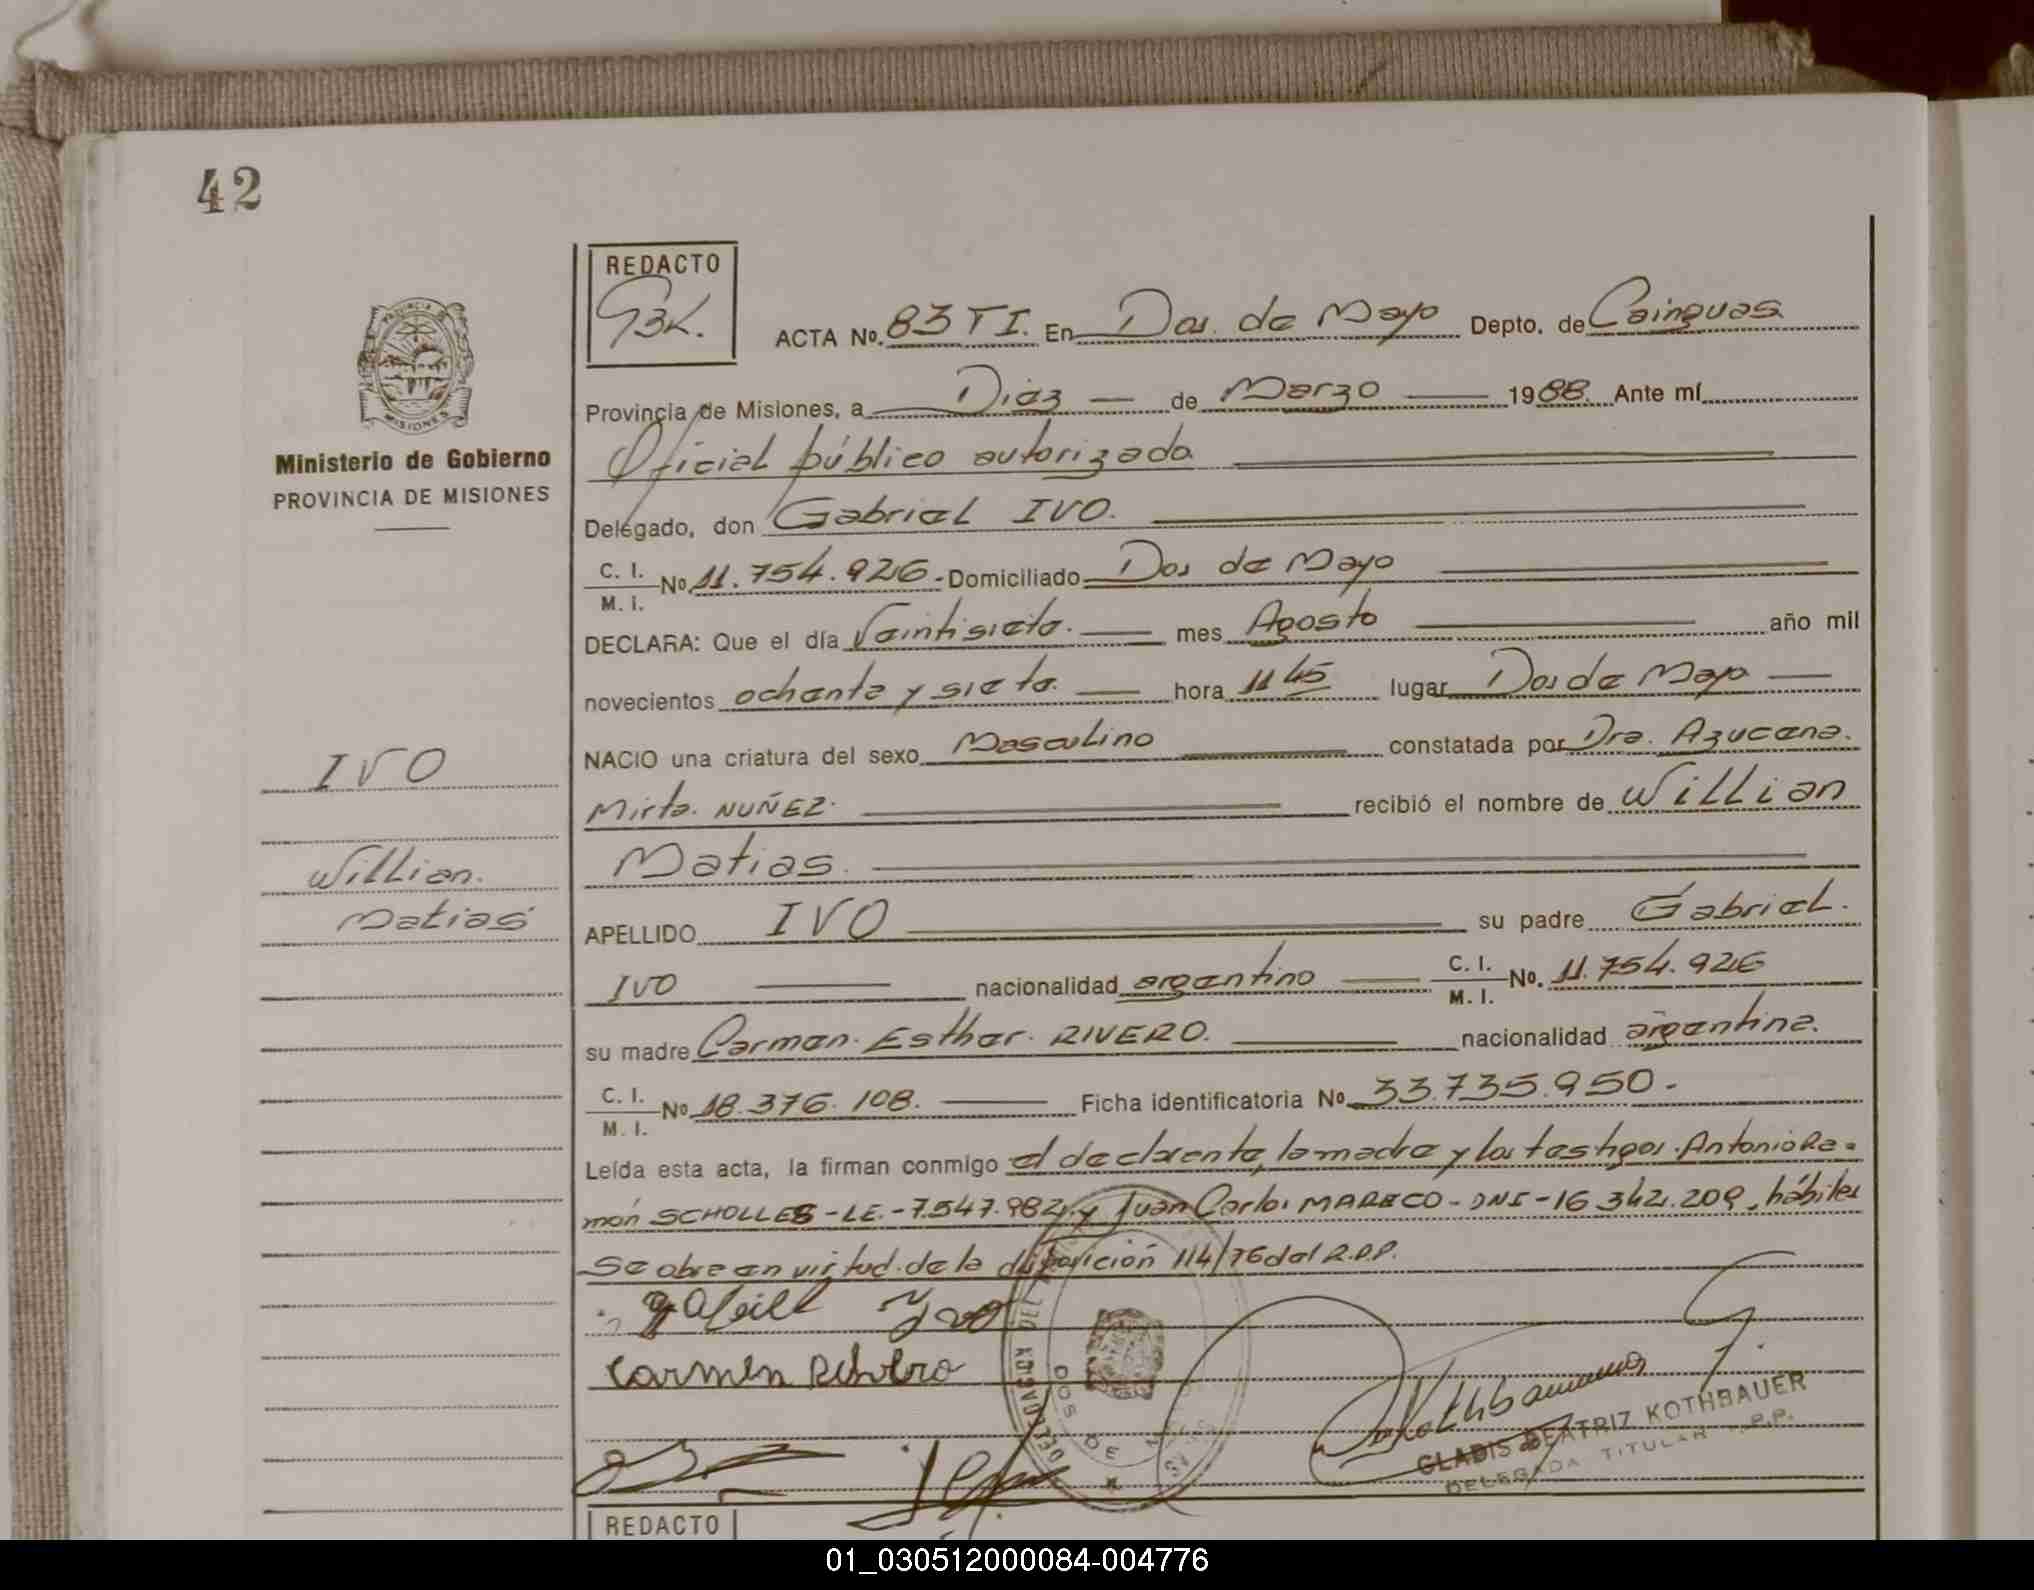 42
REDACTO
GBK.
ACTA No. 83 T I. En Dos de Mayo Depto. de Cainguas
PROVINCIA DE MISIONES
Provincia de Misiones, a Diez — de Marzo — 1988. Ante mí
Ministerio de Gobierno
PROVINCIA DE MISIONES
Oficial público autorizado
Delegado, don Gabriel IVO.
C. I. / M. I. No. 11.754.926. Domiciliado Dos de Mayo
DECLARA: Que el día Veintisiete. — mes Agosto — año mil
novecientos ochenta y siete. — hora 11 45 lugar Dos de Mayo —
NACIO una criatura del sexo Masculino — constatada por Dra. Azucena.
IVO
Mirta. NUÑEZ. — recibió el nombre de Willian
Willian.
Matias
Matias.
APELLIDO IVO — su padre Gabriel.
IVO — nacionalidad argentino — C. I. / M. I. No. 11.754.926
su madre Carmen. Esther. RIVERO. — nacionalidad argentina.
C. I. / M. I. No 18.376.108. — Ficha identificatoria No 33.735.950.-
Leída esta acta, la firman conmigo el declarente, la madre y los testigos. Antonio Ra=
món SCHOLLES-LE.-7.547.982. y Juan Carlos MARECO-DNI-16.342.209, hábiles
Se obre en virtud. de la disposición 114/76 del R.P.P.
Gabriel Ivo
Carmen Rivero
DOS DE MAYO
GLADIS BEATRIZ KOTHBAUER
DELEGADA TITULAR R.P.P.
REDACTO
01_030512000084-004776